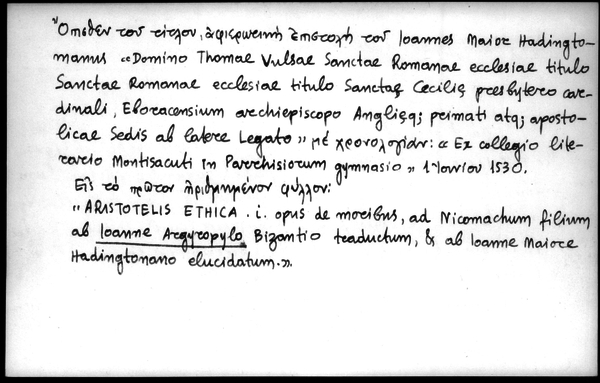 Ὄπισθεν τοῦ τίτλου, ἀφιερωτικὴ ἐπιστολὴ τοῦ Ioannes Maior Hadingto-
manus «Domino Thomae Vulsae Sanctae Romanae ecclesiae titulo
Sanctae Romanae ecclesiae titulo Sanctaę Cecilię presbytero car-
dinali, Eboracensium archiepiscopo Anglięq; primati atq; aposto-
licae Sedis ab latere Legato» μὲ χρονολογίαν: «Ex collegio lite-
rario Montisacuti in Parrhisiorum gymnasio» 1 Ἰουνίου 1530.
Εἰς τὸ πρῶτον ἠριθμημένον φύλλον:
«ARISTOTELIS ETHICA. i. opus de moribus, ad Nicomachum filium
ab Ioanne Argyropylo Bizantio traductum, & ab Ioanne Maiore
Hadingtonano elucidatum.».